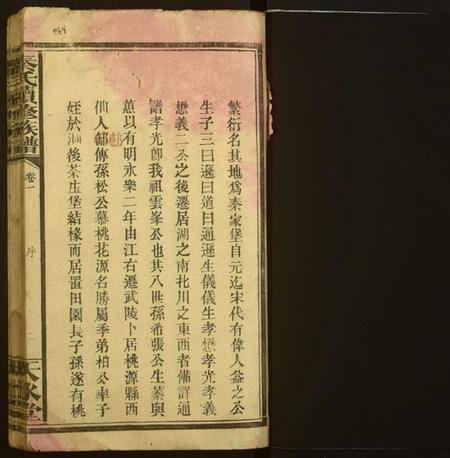 繁衍名其地爲秦家堡自元迄宋代有偉人益之公
生子三曰遜曰道曰通遜生儀儀生孝懋孝光孝義
懋義二公之後遷居湖之南北川之東西者備詳通
譜孝光卽我祖雲峯公也其八世孫希張公生蓁與
蕙以有明永樂二年由江右遷武陵卜居桃源縣西
仙人邨傳孫松公慕桃花源名勝屬季弟柏公率子
姪於湘後茶庄堡結椽而居置田園長子孫遂有桃
秦氏續修族譜
卷一
序